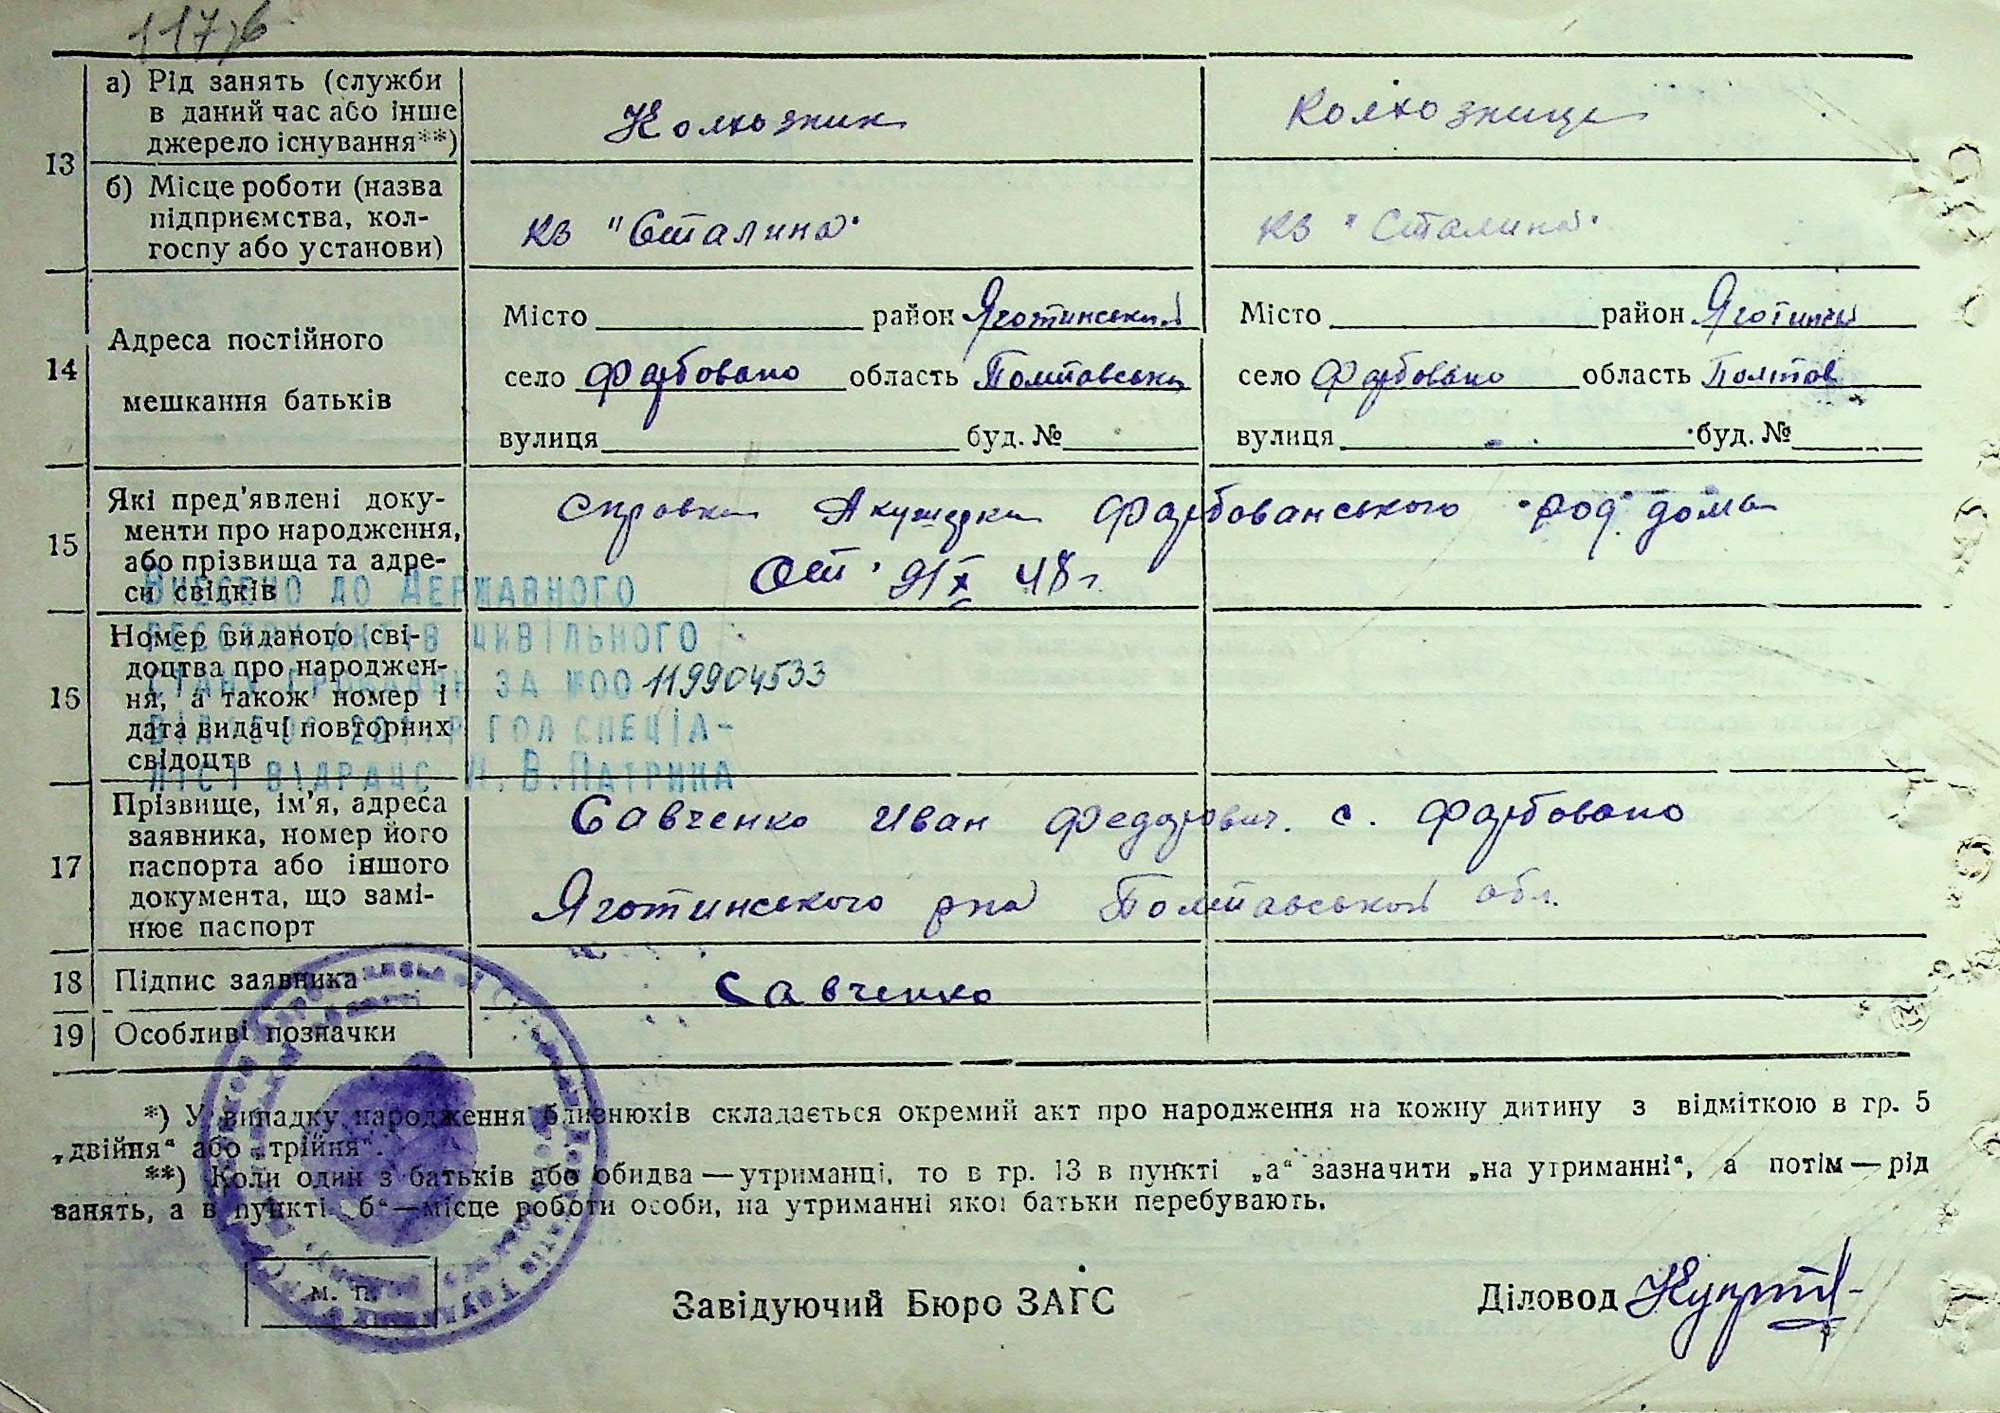 117
13
а) Рід занять (служби
в даний час або інше
джерело існування**)
Колхозник
Колхозница
б) Місце роботи (назва
підприємства, кол-
госпу або установи)
кз "Сталина"
кз "Сталина"
14
Адреса постійного
мешкання батьків
Місто район Яготинський
село Фарбовано область Полтавська
вулиця буд. №
Місто район Яготинськ
село Фарбовано область Полтав
вулиця буд. №
15
Які пред'явлені доку-
менти про народження,
або прізвища та адре-
си свідків
справка Акушерки Фарбованського род. дома
От 9/X 48 г.
16
Номер виданого сві-
доцтва про народжен-
ня, а також номер і
дата видачі повторних
свідоцтв
Внесено до Державного
реєстру актів цивільного
стану громадян за №00 119904533
Р гол спеціа-
ліст В. Патрика
17
Прізвище, ім'я, адреса
заявника, номер його
паспорта або іншого
документа, що замі-
нює паспорт
Савченко Иван Федорович. с. Фарбовано
Яготинського рна Полтавської обл.
18 Підпис заявника
Савченко
19 Особливі позначки
*) У випадку народження близнюків складається окремий акт про народження на кожну дитину з відміткою в гр. 5
„двійня“ або „трійня“.
**) Коли один з батьків або обидва — утриманці, то в гр. 13 в пункті „а“ зазначити „на утриманні“, а потім — рід
занять, а в пункті „б“ — місце роботи особи, на утриманні якої батьки перебувають.
м. п.
Завідуючий Бюро ЗАГС
Діловод